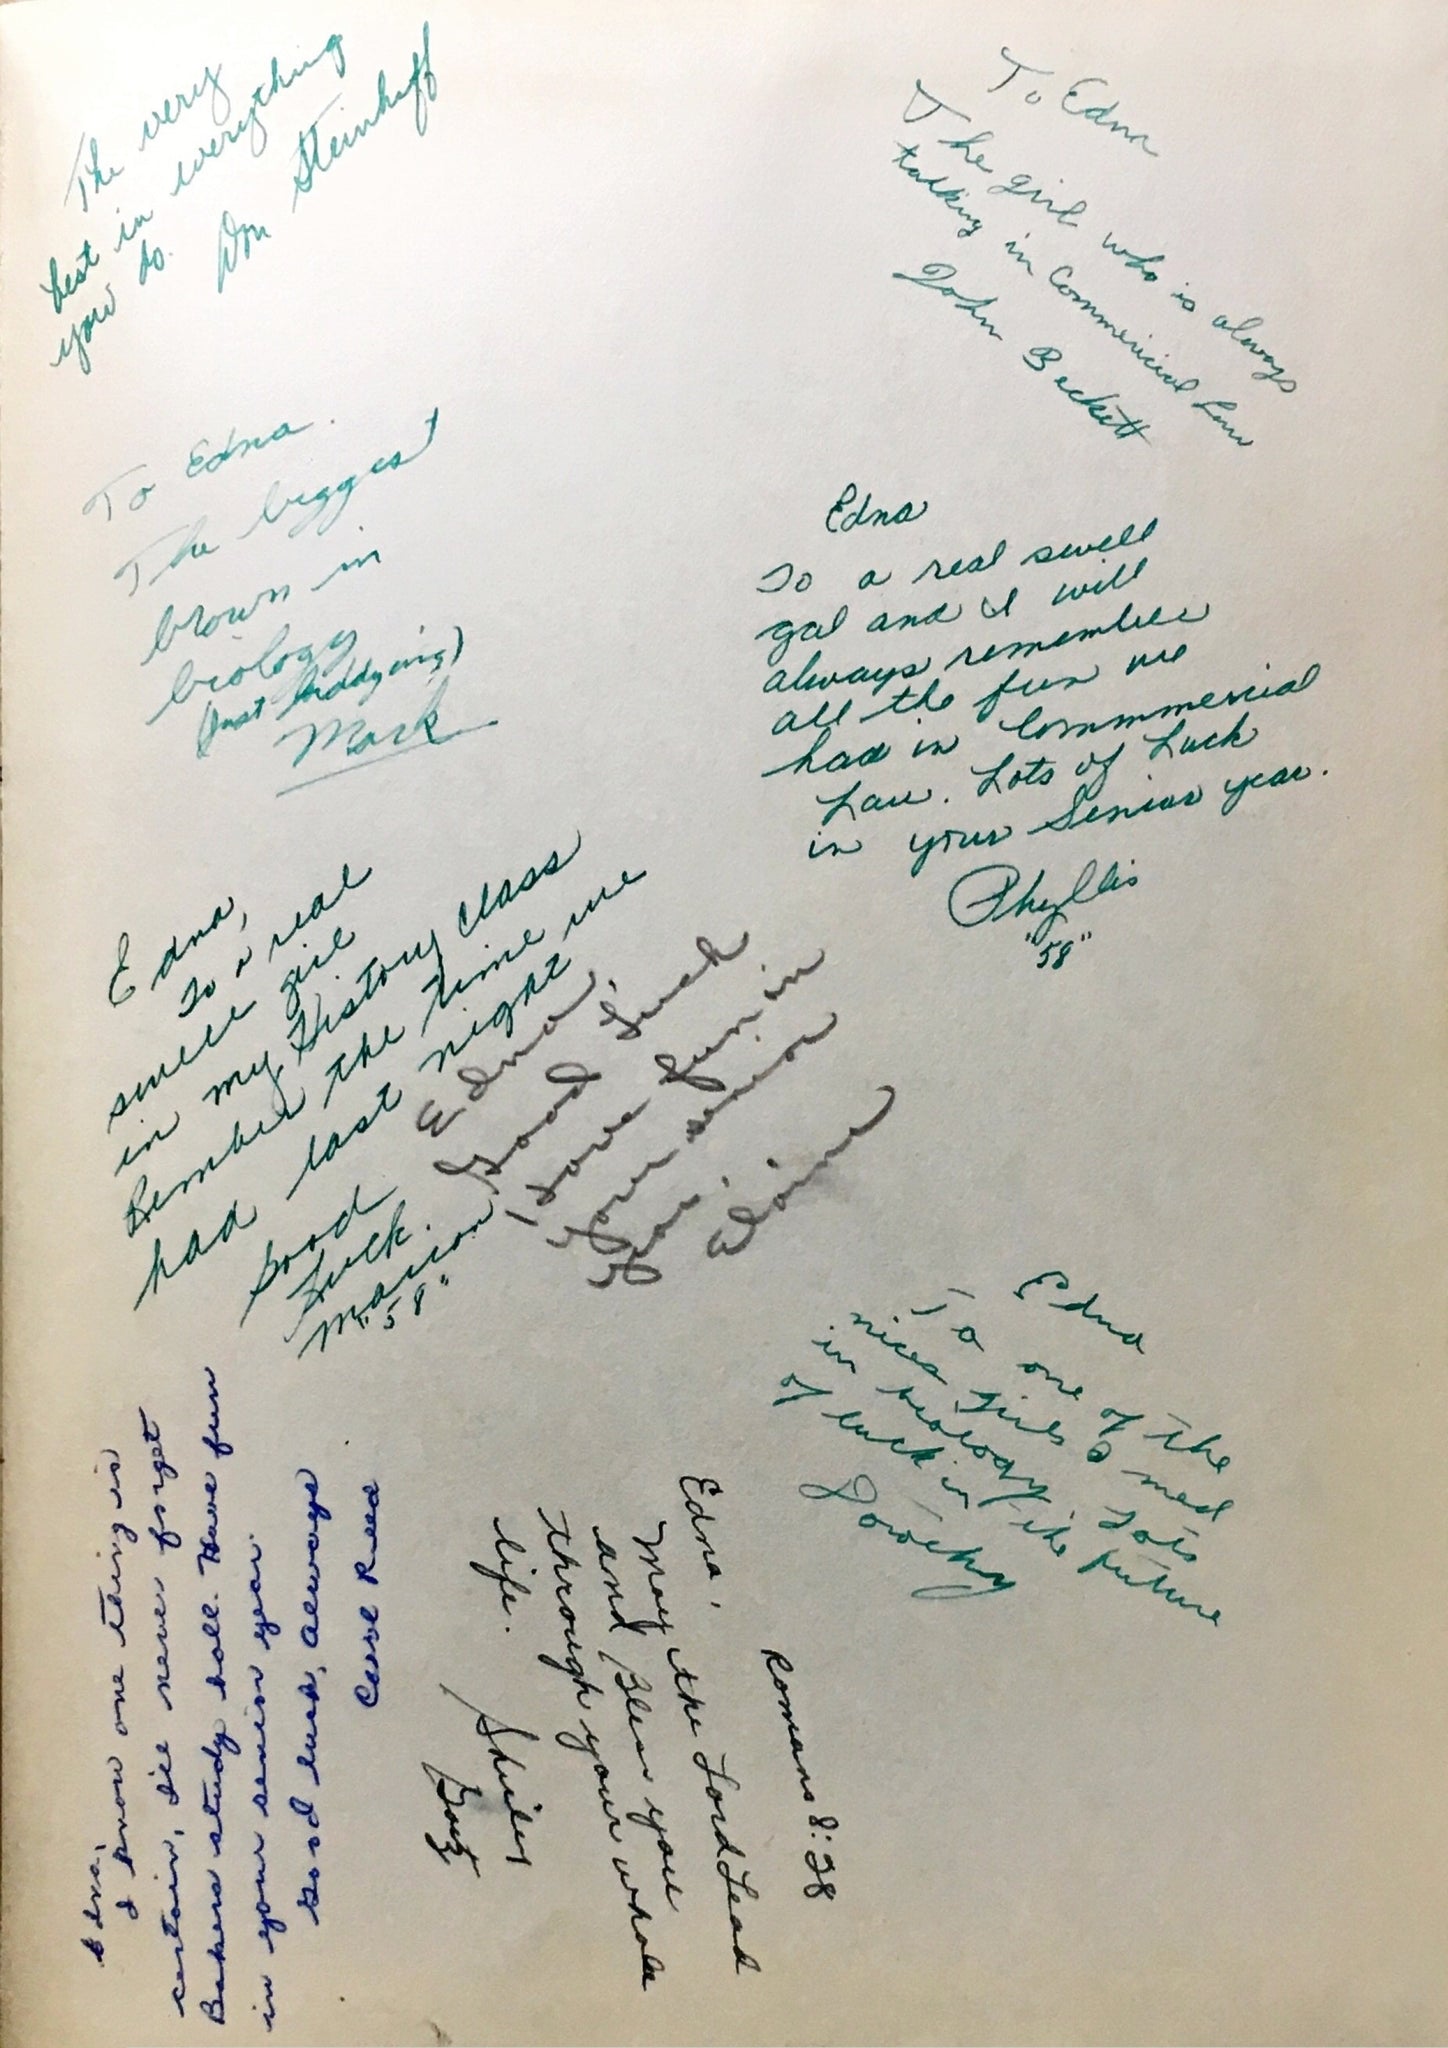 The very
best in everything
you do.
Don Steinhuff
To Edna
The girl who is always
talking in Commericial Law
John Beckett
To Edna.
The biggest
brown in
biology
(Just kiddying)
Mark
Edna
To a real swell
gal and I will
always remember
all the fun we
had in Commmercial
Law. Lots of Luck
in your Senior year.
Phyllis
"58"
Edna,
To a real
swell girl
in my History class
Rember the time we
had last night
Good
Luck.
Marion
"58"
Edna,
Good Luck
Have fun in
your senior
year.
Elaine
Edna
To one of the
nices girls I med
in biology Lots
of luck in the future
Dorothy
Edna,
I know one thing is
certain, I'll never forget
Bakers study hall. Have fun
in your senior year.
Good luck, Always
Carol Reed
Romans 8:28
Edna,
May the Lord Lead
and Bless you
through your whole
life.
Shirley